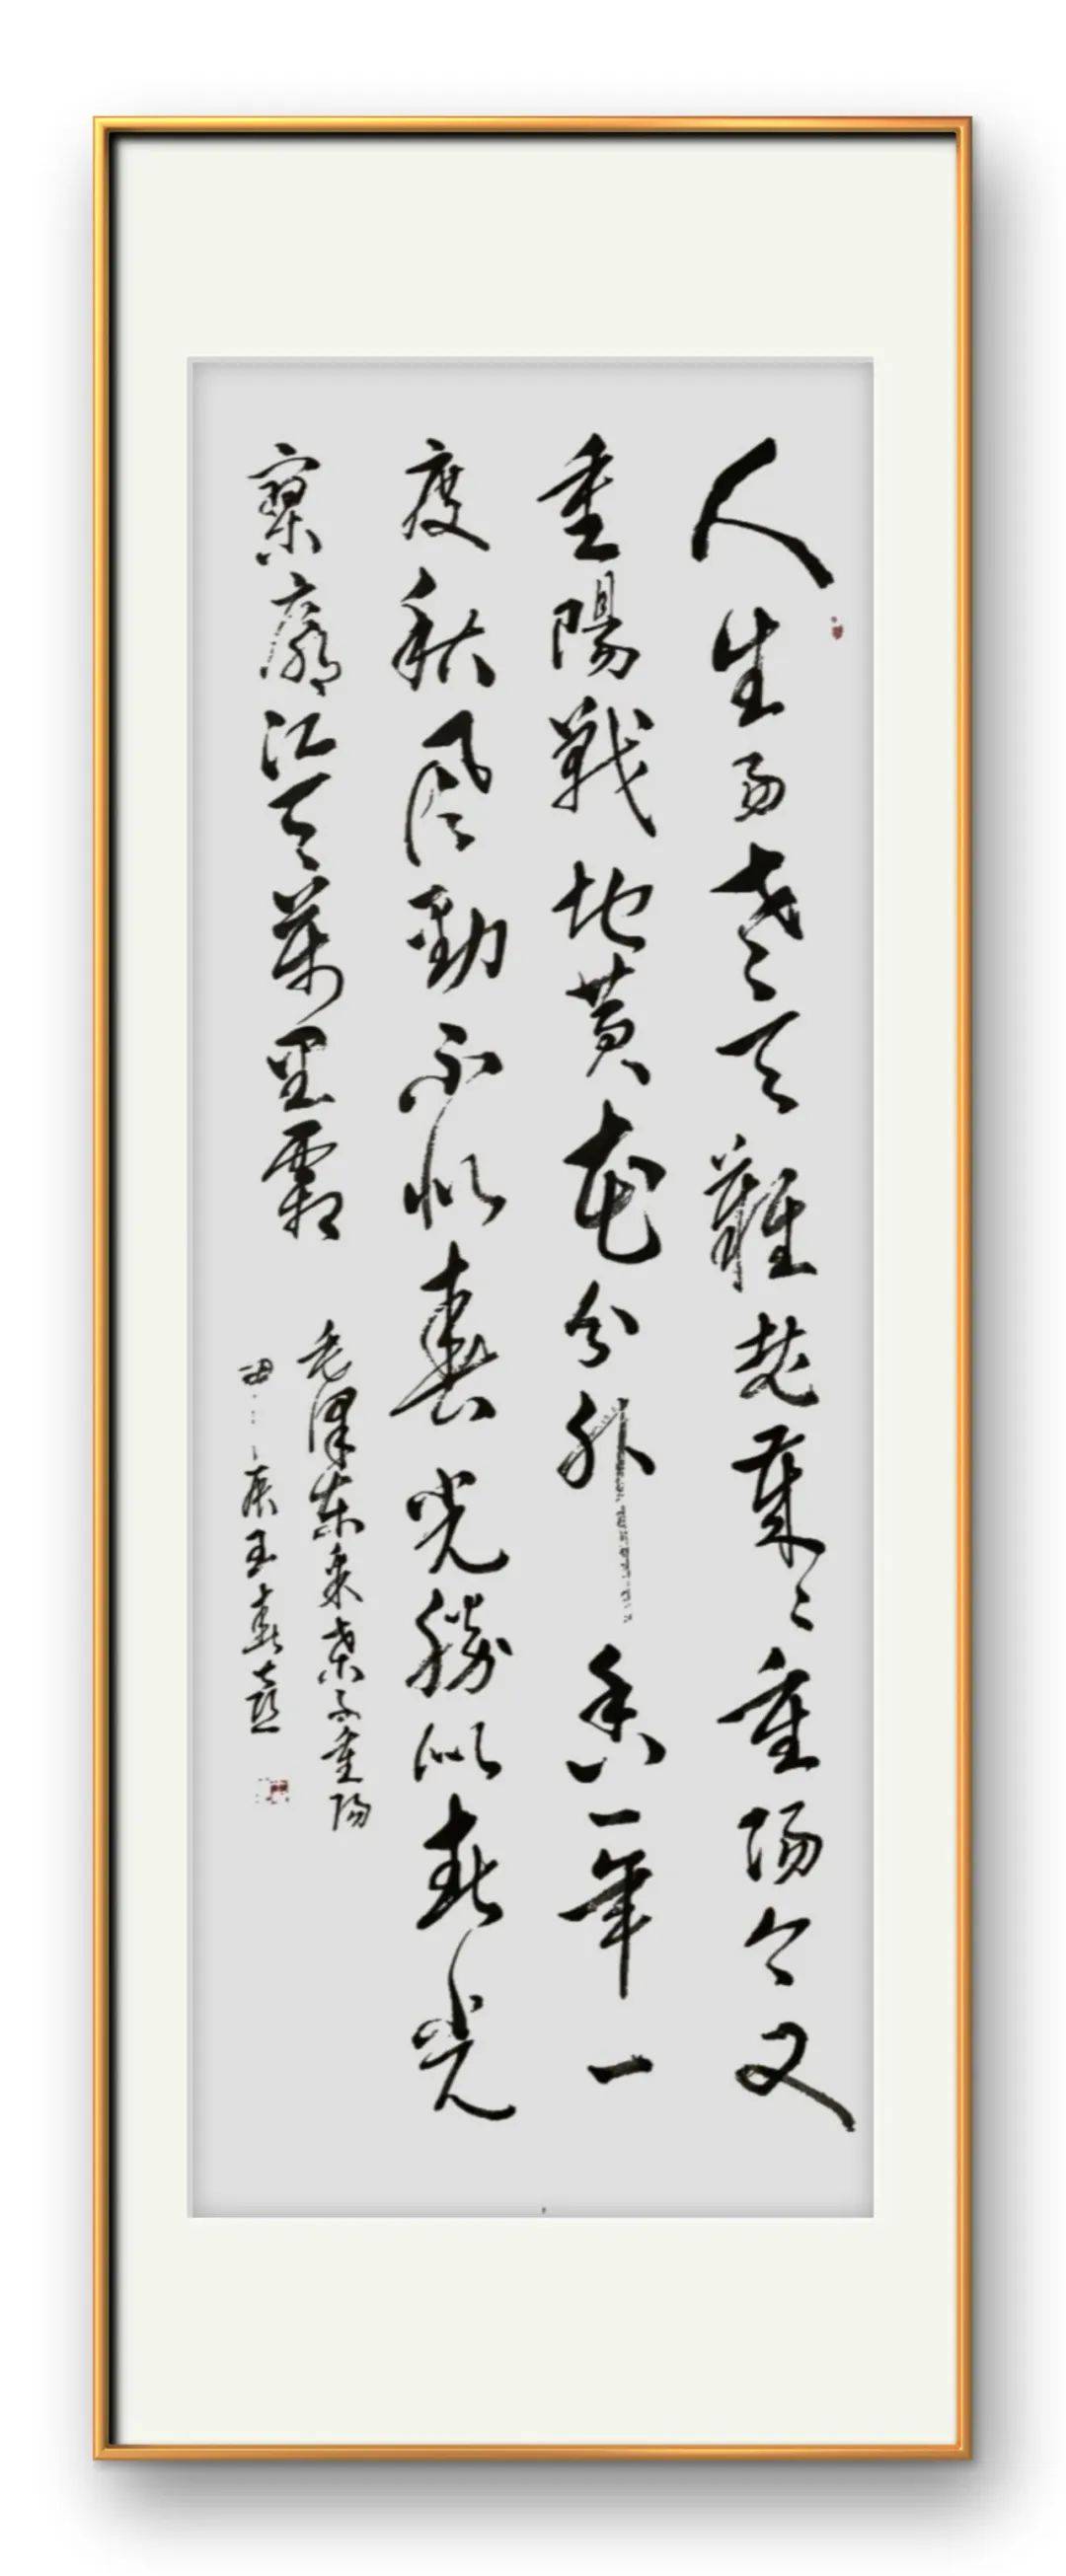 人生易老天難老歲〻重陽今又
重陽戰地黃花分外香一年一
度秋風勁不似春光勝似春光
寥廓江天萬里霜
毛澤東采桑子重陽
辰王春